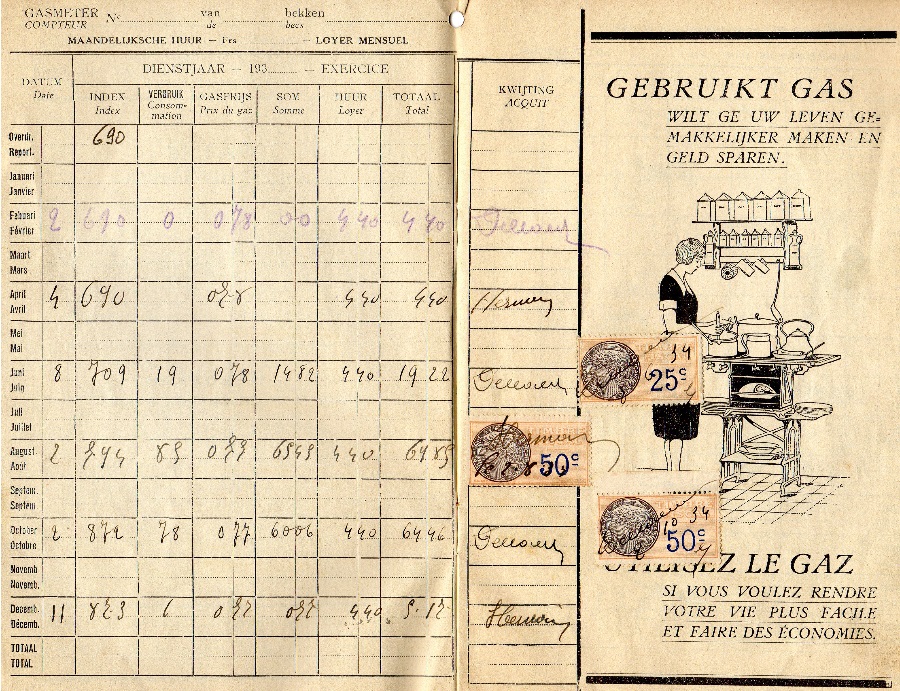 GASMETER N° van bekken
COMPTEUR de becs
MAANDELIJKSCHE HUUR — Frs — LOYER MENSUEL
DIENSTJAAR — 193 — EXERCICE
DATUM INDEX VERBRUIK GASPRIJS SOM HUUR TOTAAL KWIJTING
Date Index Consommation Prix du gaz Somme Loyer Total ACQUIT
Overdr. 690
Report.
Januari
Janvier
Febuari 2 690 0 078 00 440 440
Février
Maart
Mars
April 4 690 078 440 440
Avril
Mei
Mai
Juni 8 709 19 078 1482 440 1922
Juin
Juli
Juillet
August. 2 794 85 077 6545 440
Août
Septem.
Septem.
October 2 872 78 077 6006 440 6446
Octobre
Novemb
Novemb.
Decemb. 11 873 1 077 077 440 5.17
Décemb.
TOTAAL
TOTAL
GEBRUIKT GAS
WILT GE UW LEVEN GE=
MAKKELIJKER MAKEN EN
GELD SPAREN.
34
25c
50c
34
50c
UTILISEZ LE GAZ
SI VOUS VOULEZ RENDRE
VOTRE VIE PLUS FACILE
ET FAIRE DES ÉCONOMIES.